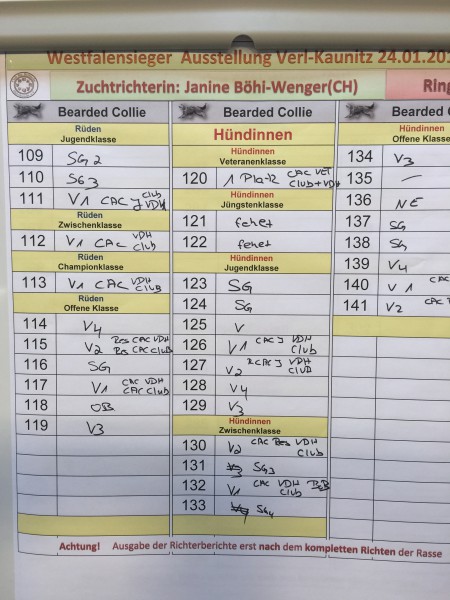 Westfalensieger Ausstellung Verl-Kaunitz 24.01.20
Zuchtrichterin: Janine Böhi-Wenger(CH)
Ring
Bearded Collie
Rüden
Jugendklasse
109 SG2
110 SG3
111 V1 CAC J Club VDH
Rüden
Zwischenklasse
112 V1 CAC VDH Club
Rüden
Championklasse
113 V1 CAC VDH Club
Rüden
Offene Klasse
114 V4
115 V2 Res CAC VDH
Res CAC Club
116 SG
117 V1 CAC VDH
CAC Club
118 OB
119 V3
Bearded Collie
Hündinnen
Hündinnen
Veteranenklasse
120 1 Platz CAC VET
Club+VDH
Hündinnen
Jüngstenklasse
121 fehlt
122 fehlt
Hündinnen
Jugendklasse
123 SG
124 SG
125 V
126 V1 CAC J VDH
Club
127 V2 CAC J VDH
Club
128 V4
129 V3
Hündinnen
Zwischenklasse
130 V2 CAC Res VDH
Club
131 SG3
132 V1 CAC VDH
Club
133 SG4
Bearded C
Hündinnen
Offene Klasse
134 V3
135 —
136 NE
137 SG
138 SG
139 V4
140 V1 CAC
141 V2 CAC
Achtung! Ausgabe der Richterberichte erst nach dem kompletten Richten der Rasse